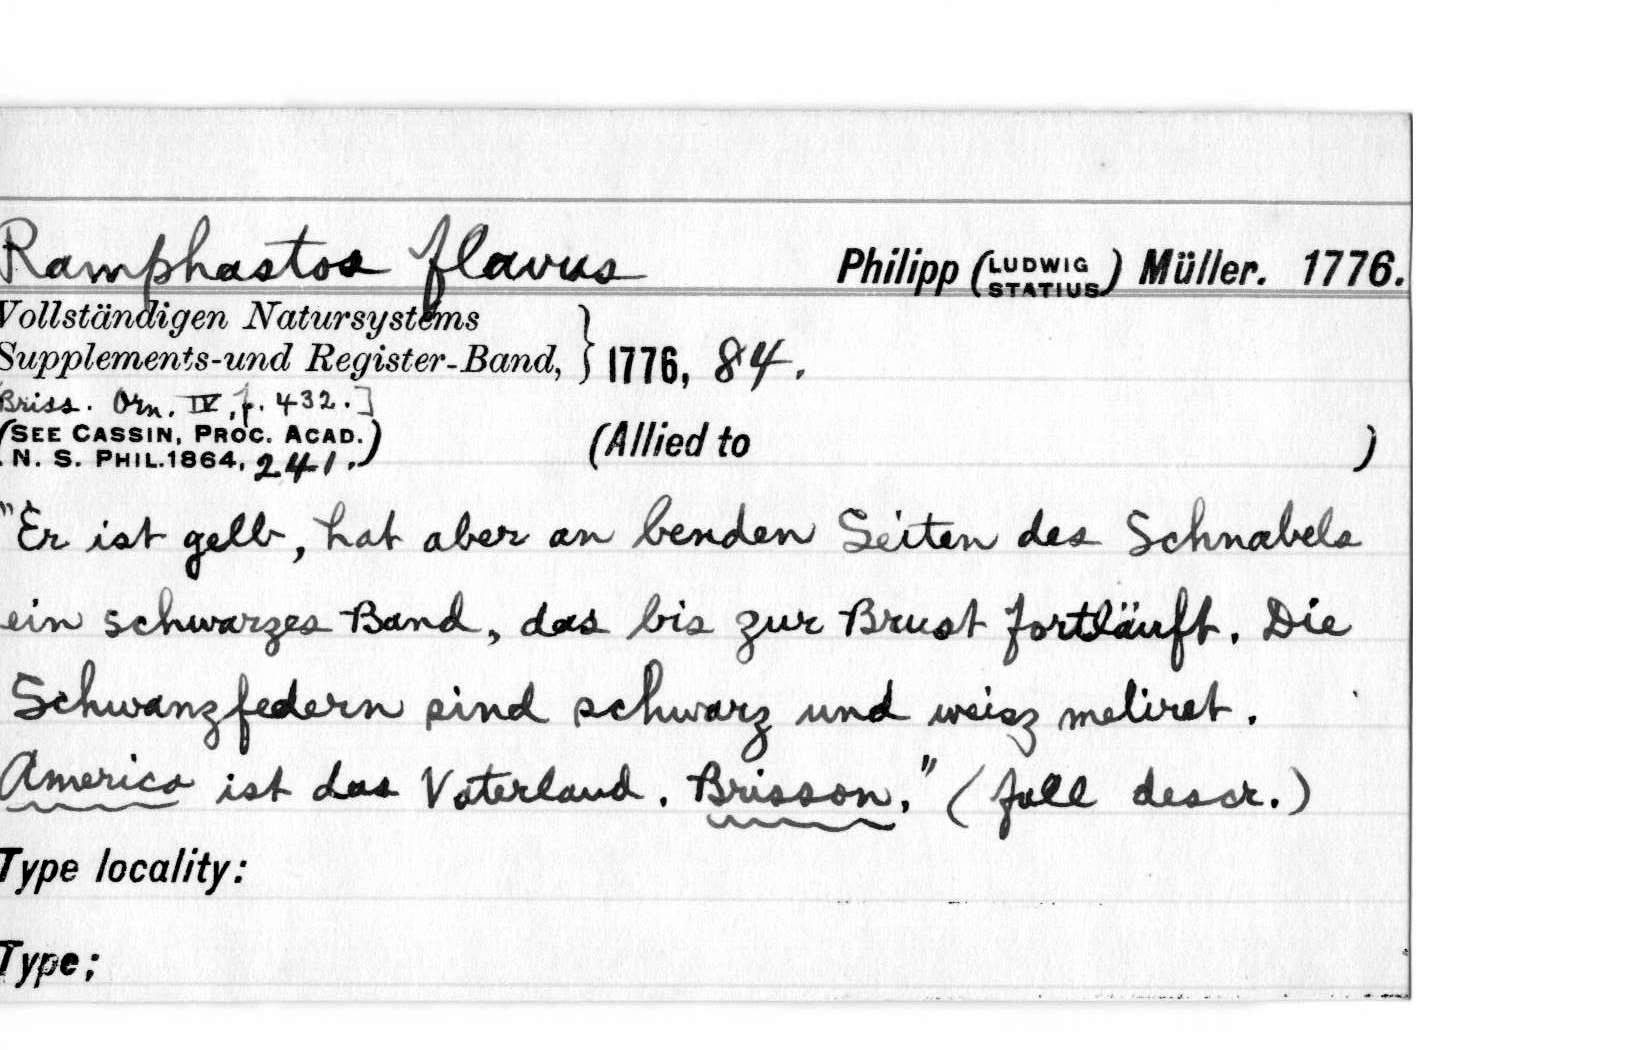 Ramphastos flavus Philipp (LUDWIG STATIUS) Müller. 1776.
Vollständigen Natursystems
Supplements-und Register-Band, } 1776, 84.
Briss. Orn. IV, p. 432.]
(SEE CASSIN, PROC. ACAD.
N. S. PHIL. 1864, 241.) (Allied to )
"Er ist gelb, hat aber an benden Seiten des Schnabels
ein schwarzes Band, das bis zur Brust fortläuft. Die
Schwanzfedern sind schwarz und weisz meliret.
America ist das Vaterland. Brisson." (full descr.)
Type locality:
Type;